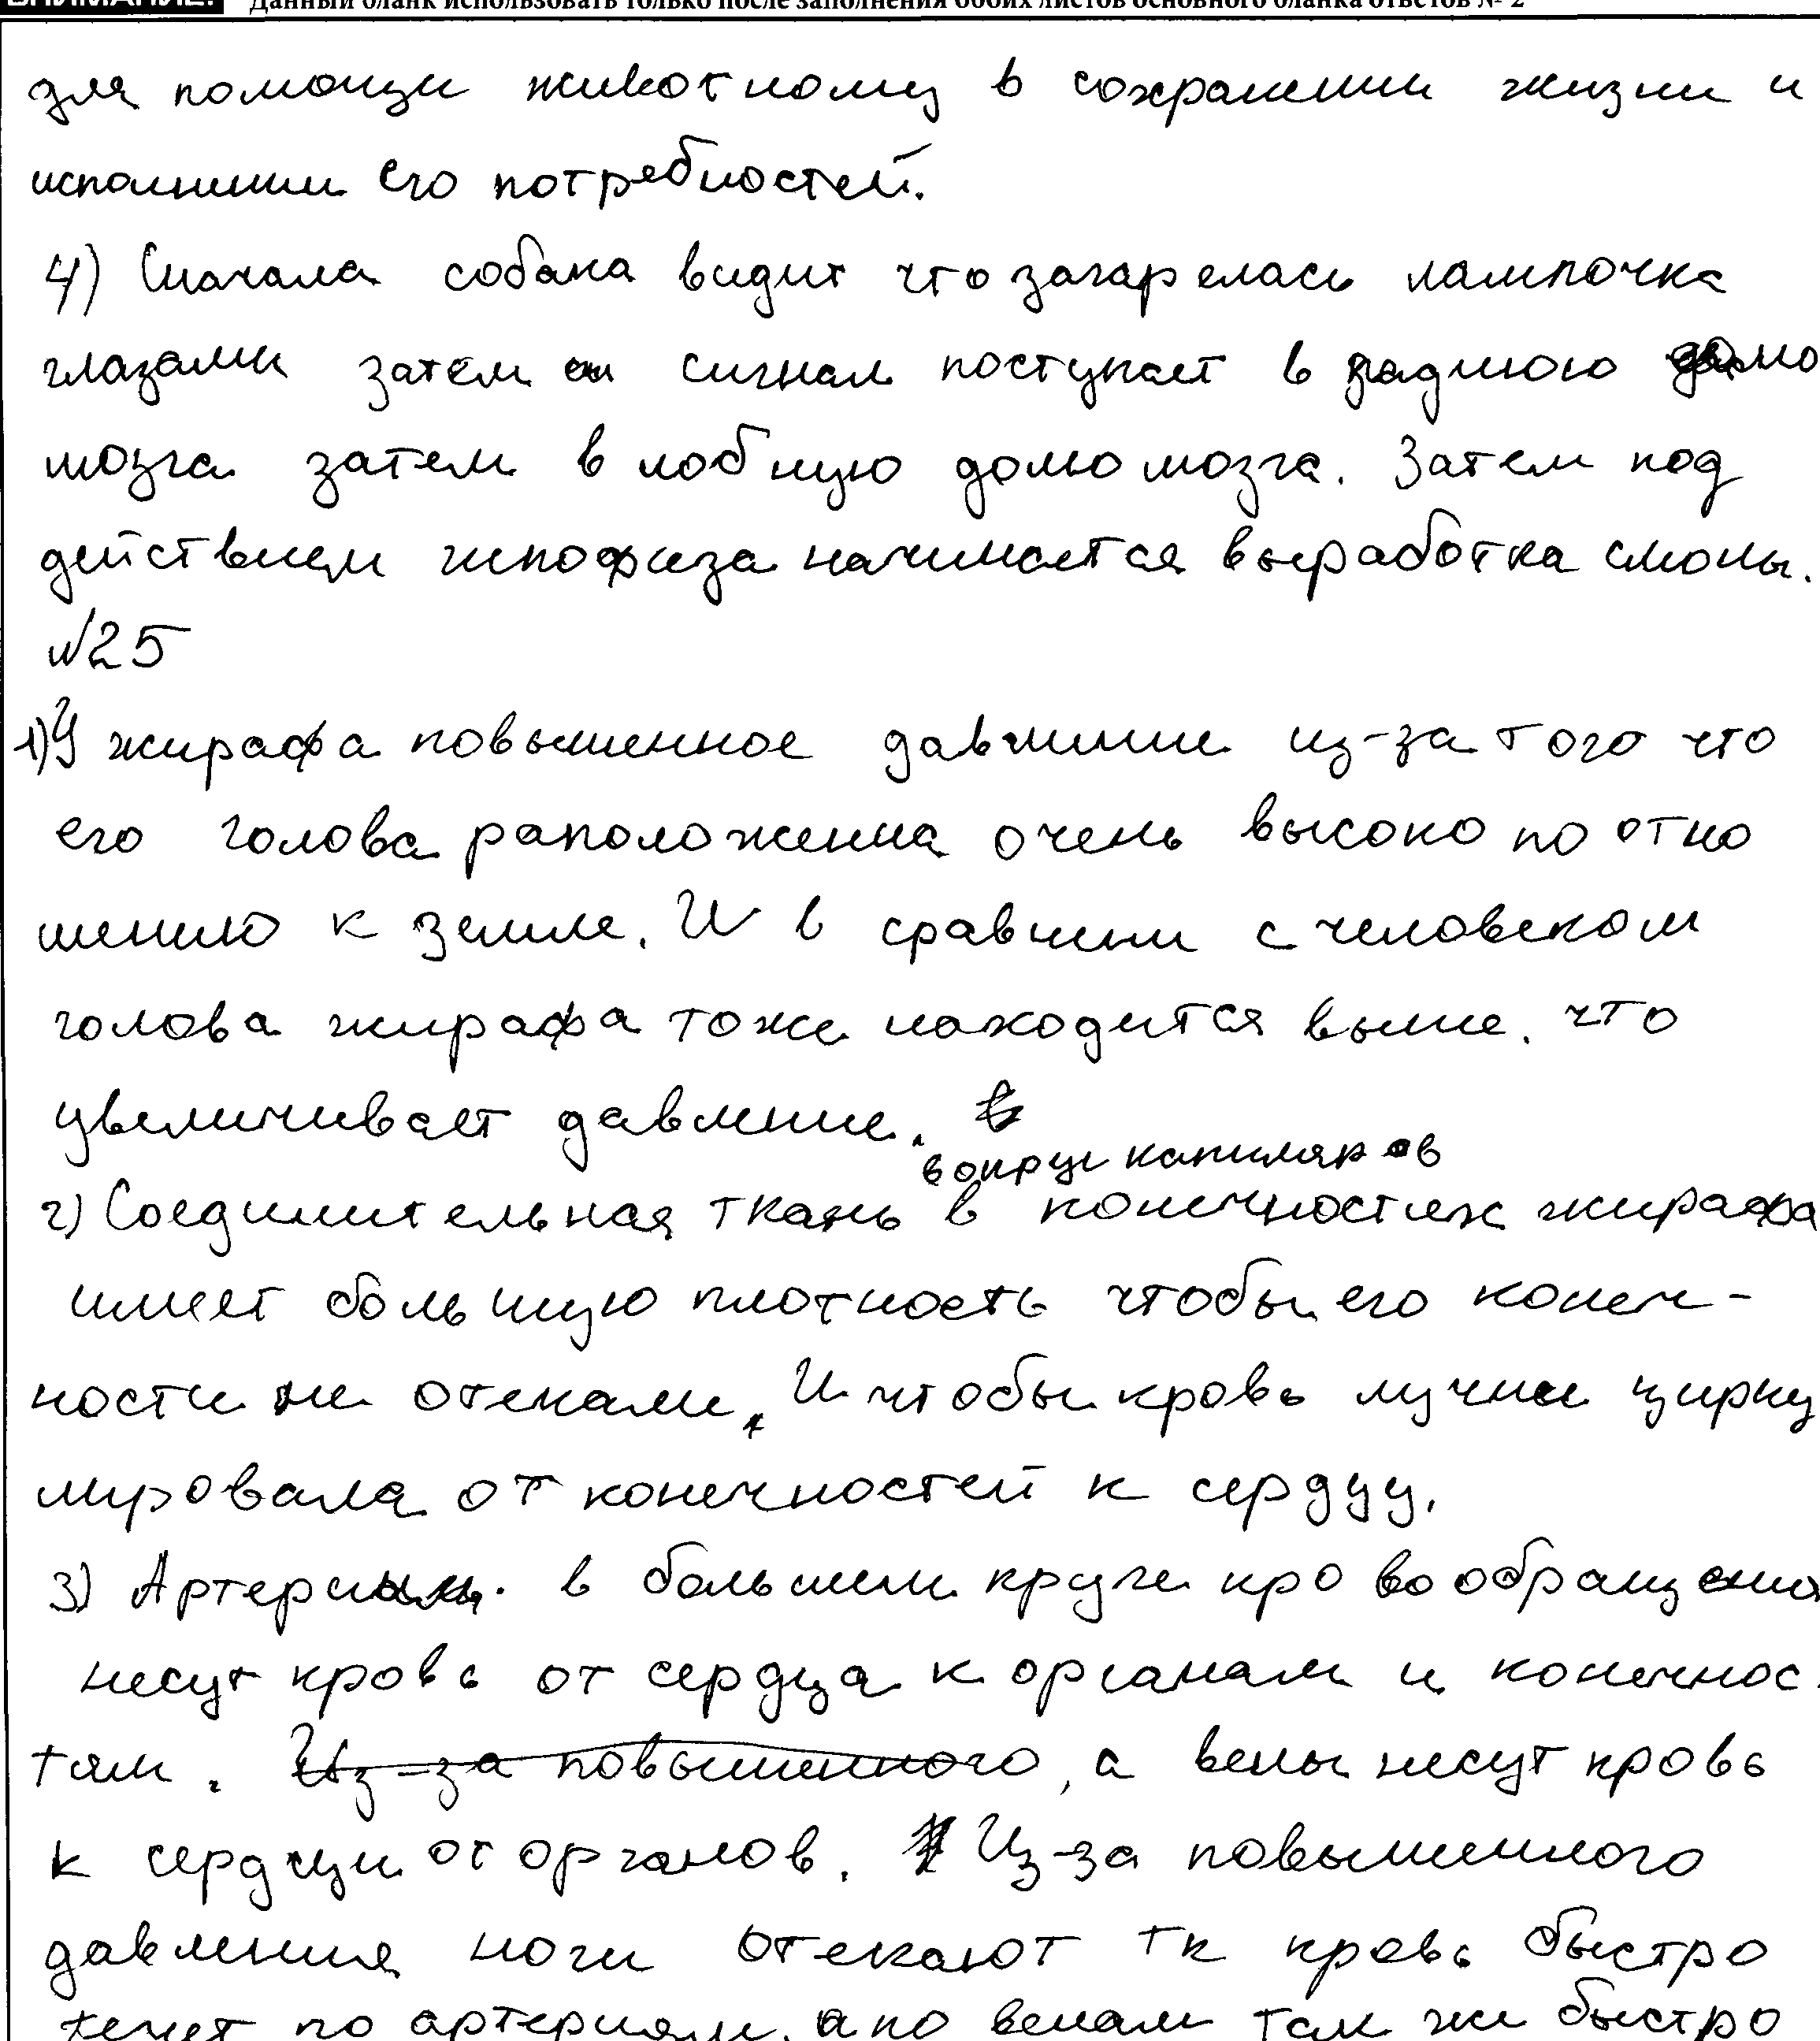 ВНИМАНИЕ! Данный бланк использовать только после заполнения обоих листов основного бланка ответов № 2
для помощи животному в сохранении жизни и
исполнении его потребностей.
4) Сначала собака видит что загарелась лампочка
глазами затем сигнал поступает в заднюю долю
мозга затем в лобную долю мозга. Затем под
действием гипофиза начинается выработка слюны.
№25
1) У жирафа повышенное давление из-за того что
его голова раположенна очень высоко по отно
шению к земле. И в сравнени с человеком
голова жирафа тоже находится выше. что
увеличивает давление.
вокруг капиляров
2) Соединительная ткань в конечностях жирафа
имеет большую плотность чтобы его конеч-
ности не отекали. И чтобы кровь лучше цирку
лировала от конечностей к сердцу.
3) Артерии в большем круге кровообращения
несут кровь от сердца к органам и конечнос
тям. Из-за повышенного, а вены несут кровь
к сердцу от органов. Из-за повышенного
давления ноги отекают тк кровь быстро
течет по артериям, а по венам так же быстро